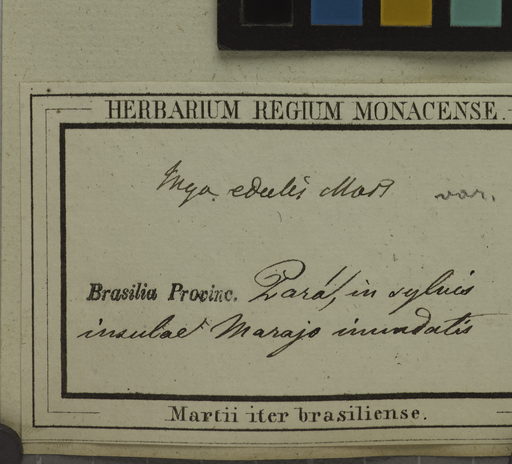 HERBARIUM REGIUM MONACENSE.
Inga edulis Mart var.
Brasilia Provinc. Pará, in sylvis
insulae Marajo inundatis
Martii iter brasiliense.